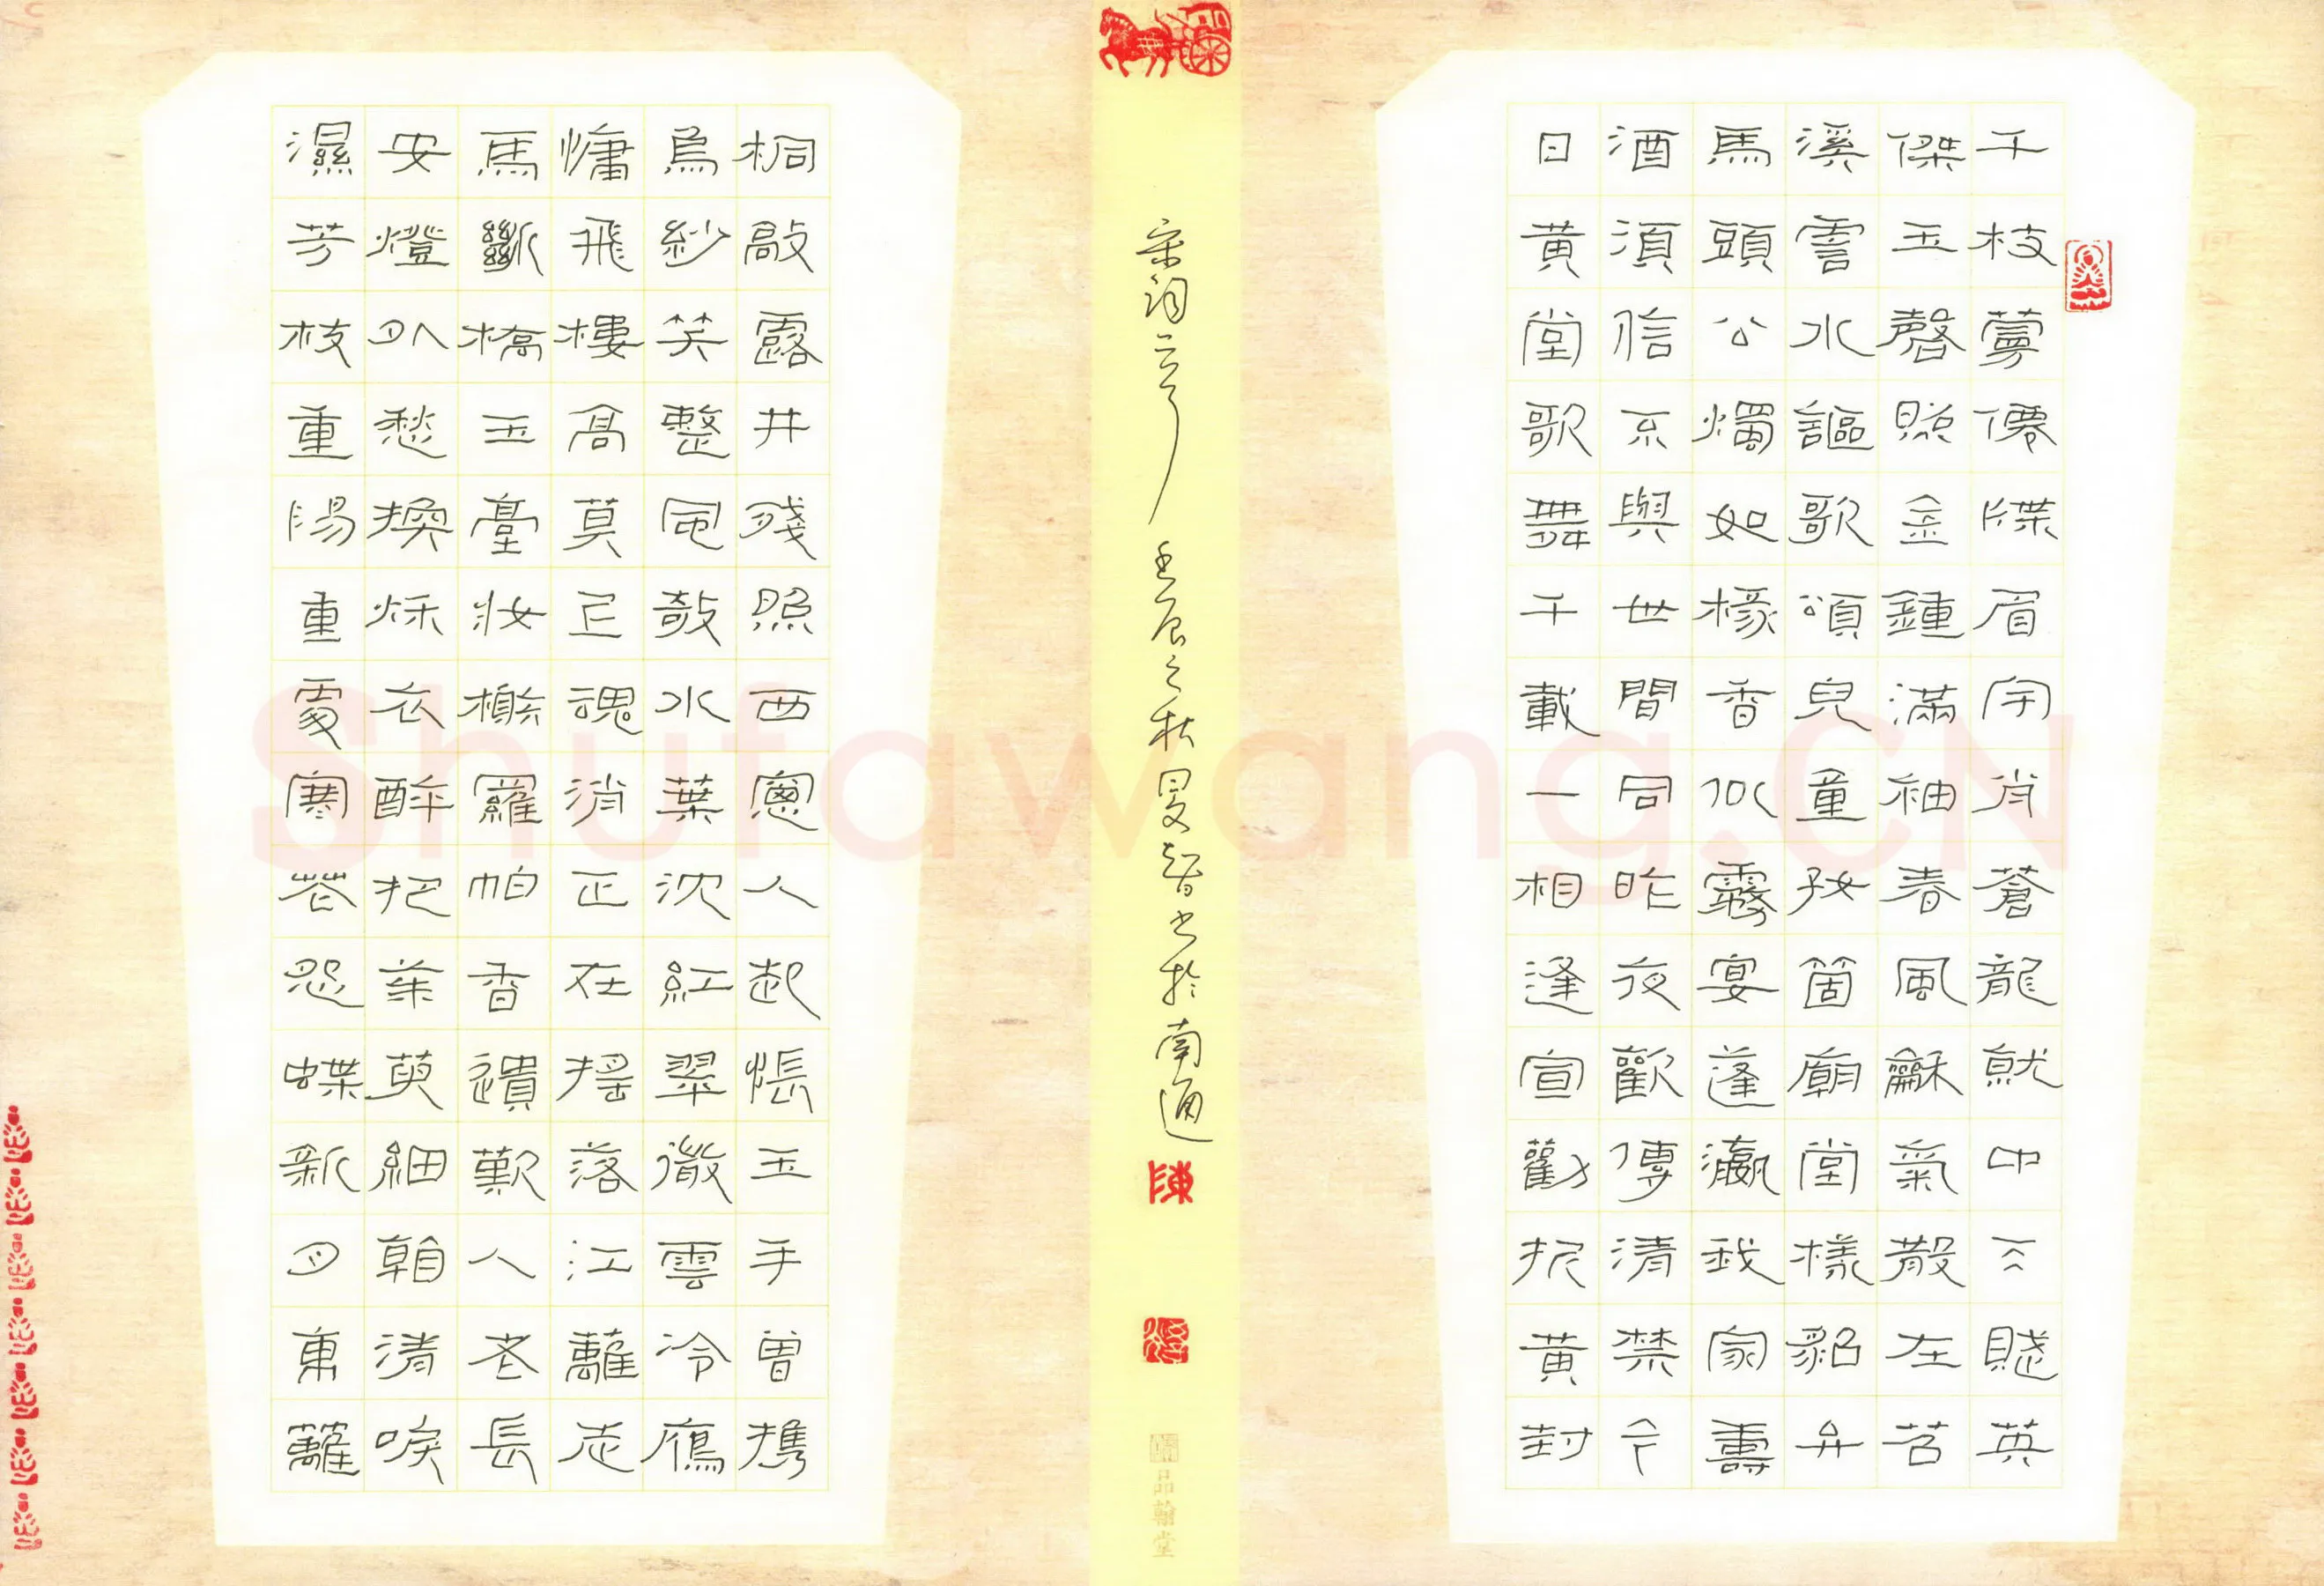 千枝萼僊牒眉宇肖蒼龍就中天賦英
傑玉磬照金鍾滿袖春風龢氣散在苕
溪霅水謳歌頌兒童孜箇廟堂樣貂弁
馬頭公燭如椽香似霧宴蓬瀛我家壽
酒須信不與世間同昨夜歡傳清禁今
日黃堂歌舞千載一相逢宣勸挹黃封
宋詞二章 壬辰之秋旻智書於南通
陳
品翰堂
桐敲露井殘照西窻人起悵玉手曾攜
烏紗笑整風敧水葉沈紅翠微雲冷鴈
慵飛樓高莫上魂消正在搖落江蘺走
馬斷橋玉臺妝榭羅帕香遺歎人老長
安燈外愁換秋衣醉把茱萸細看清淚
濕芳枝重陽重處寒花怨蝶新月東籬
Shufawang.CN